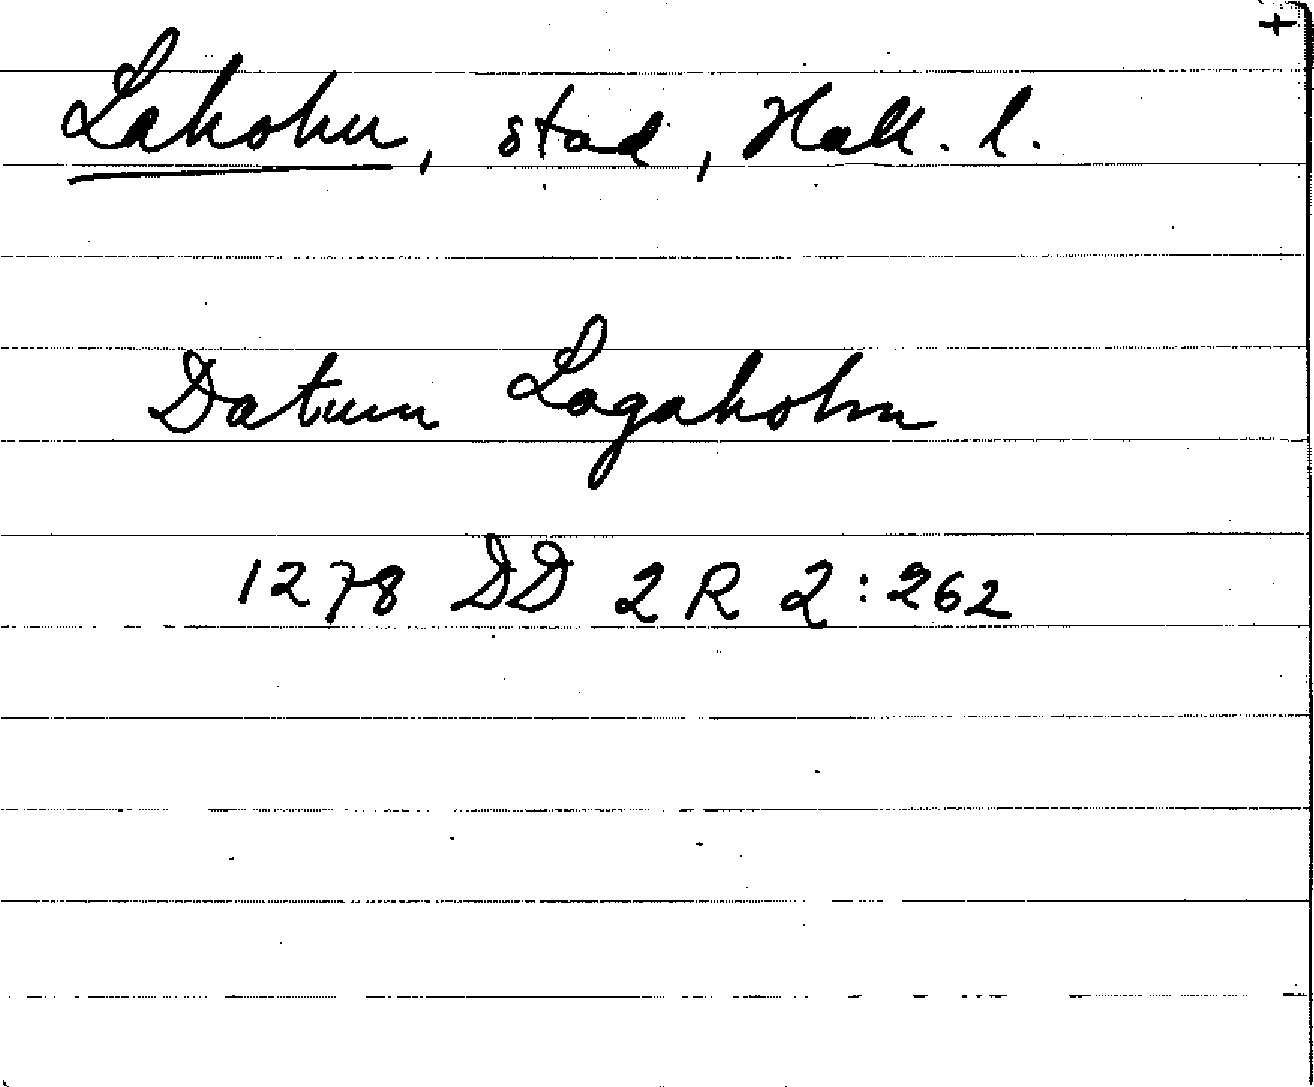 +
Laholm, stad, Hall. l.
Datum Lagaholm
1278 DD 2 R 2:262